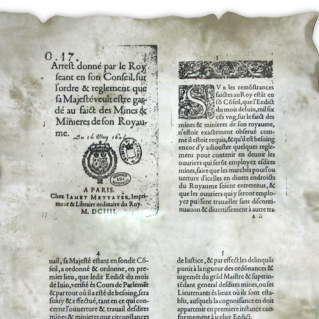 G. 17.
Arrest donné par le Roy
seant en son Conseil, sur
l'ordre & reglement que
sa Majesté veult estre gar-
dé au faict des Mines &
Minieres de son Royau-
me.
A PARIS.
Chez IAMET METTAYER, Impri-
meur & Libraire ordinaire du Roy.
M. DCIIII.
SVR les remőstrances
faictes au Roy estãt en
sõ Cõsol, que l'Edict
du mois de Iuin, mil six
cẽs vng, sur le faict des
mines & minieres de son royaume,
n'estoit exactement obserué com-
me il estoit requis, & qu'il est besoing
encor d'y adiouster quelques regle-
mens pour contenir en deuoir les
ouuriers qui serõt employez esdites
mines, faire que les marchés pour l'ou-
uerture d'icelles en diuers endroicts
du Royaume soient entretenus, &
que les ouuriers qui y seront employ-
ez puissent trauailler sans disconti-
nuation & diuertissement à autre tra-
A ii
uail, sa Majesté estant en sondit Cõ-
seil, a ordonné & ordonne, en pre-
mier lieu, que ledit Edict du mois
de Iuin, verifié és Cours de Parlemẽt
& par tout où il a esté de besoing, sera
suiuy & effectué, tant en ce qui con-
cerne l'ouuerture & trauail desdites
mines & minieres que circonstances
5
de Iustice, & par effect les delinquãs
punis à la rigueur des ordonnances &
iugemẽs du grãd Maistre & superin-
tẽdant general desdites mines, ou ses
Lieutenants és lieux où ils sont esta-
blis, ausquels la cognoissance en doit
appartenir en premiere instance con-
formement à iceluy Edict.